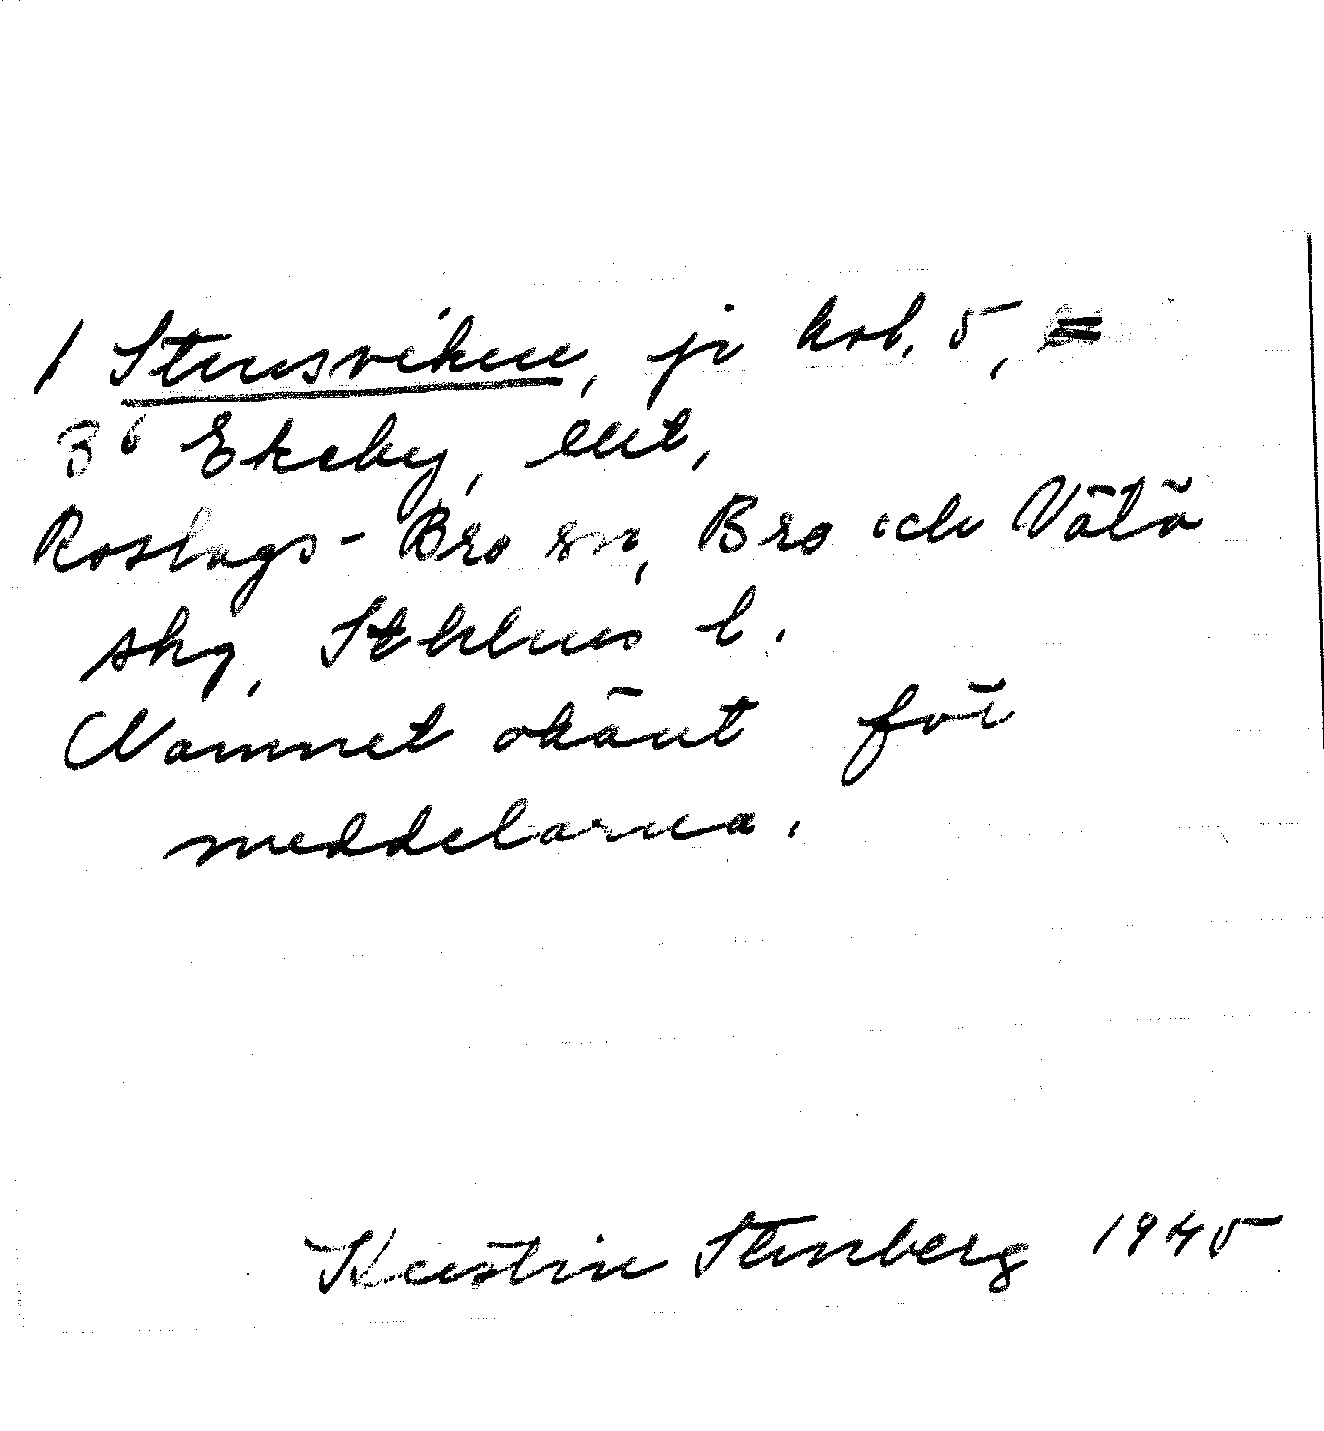 / Stensviken, jr kob. 5,
3⁶ Ekeby, enl.
Roslags-Bro sn, Bro och Vätö
skg, Sthlms l.
Namnet okänt för
meddelarna.
Kerstin Stenberg 1945